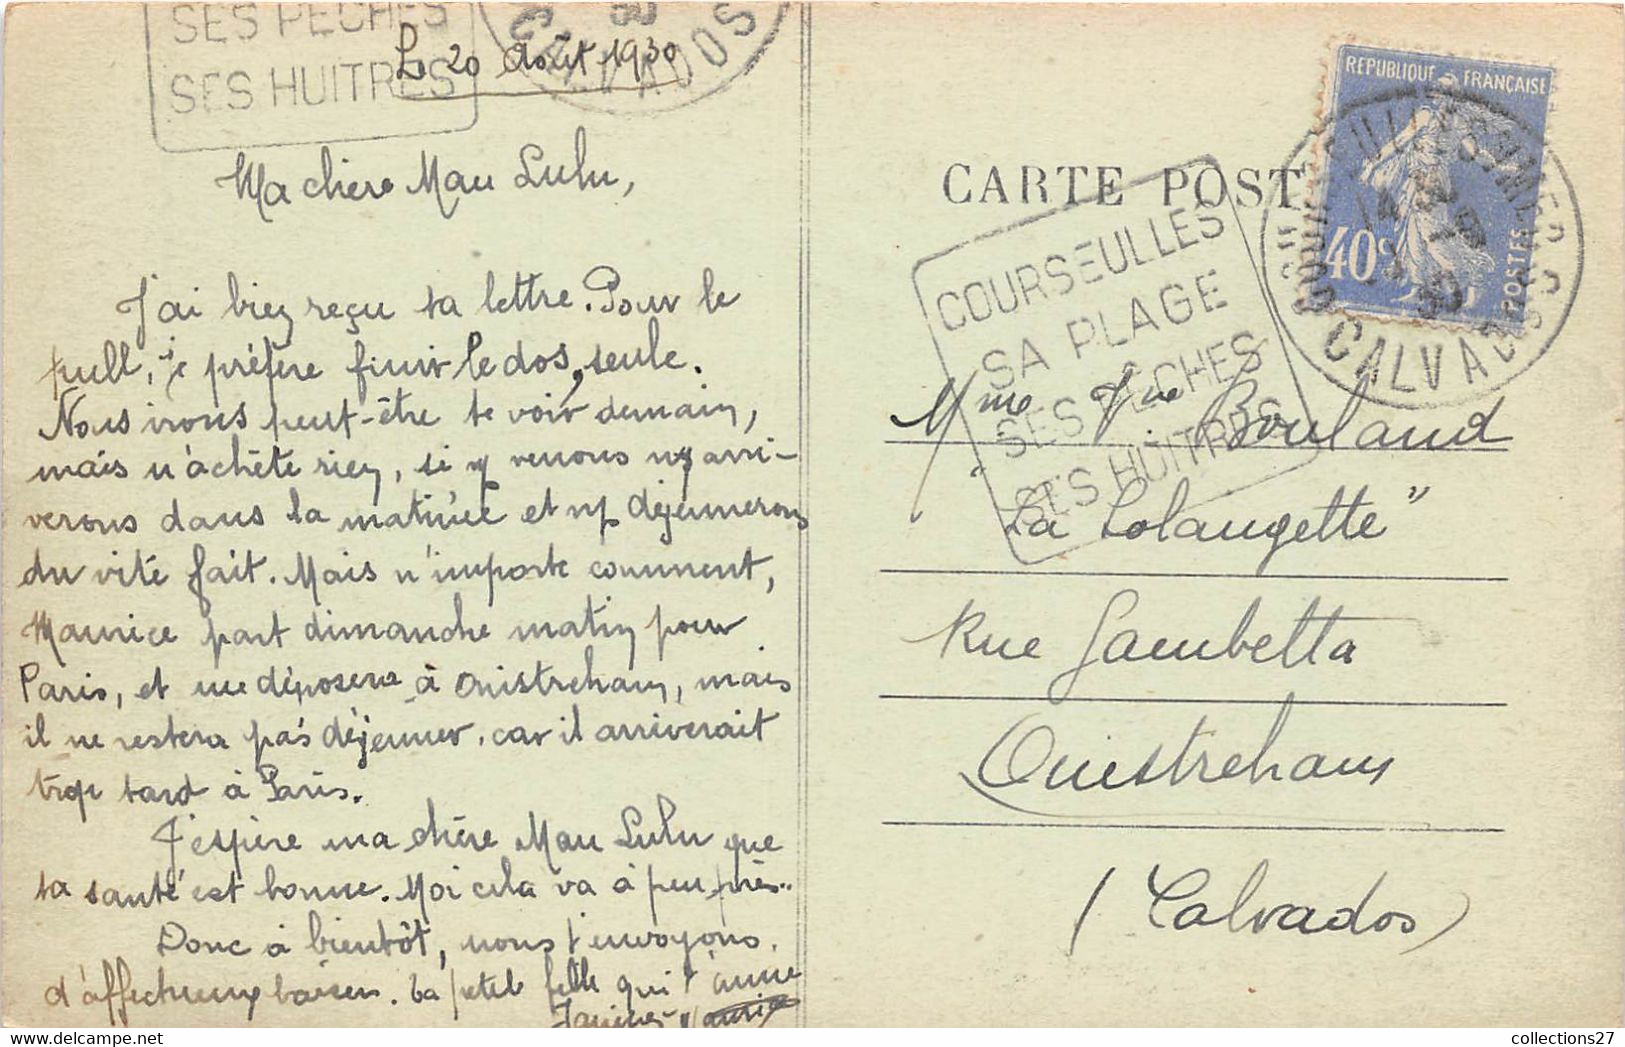 SES PECHES
SES HUITRES
CALVADOS
Le 20 Août 1930
Ma chère Mau Lulu,
J'ai bien reçu ta lettre. Pour le
pull, je préfère finir le dos, seule.
Nous irons peut-être te voir demain,
mais n'achète rien, si ns venons ns arri-
verons dans la matinée et ns déjeunerons
du vite fait. Mais n'importe comment,
Maurice part dimanche matin pour
Paris, et me déposera à Ouistreham, mais
il ne restera pas déjeuner, car il arriverait
trop tard à Paris.
J'espère ma chère Mau Lulu que
ta santé est bonne. Moi cela va à peu près..
Donc à bientôt, nous t'envoyons
d'affectueux baisers. ta petite fille qui t'aime
Janine Maurice
CARTE POST
REPUBLIQUE FRANÇAISE
40c
POSTES
CALVADOS
COURSEULLES
SA PLAGE
SES PECHES
SES HUITRES
Mme Vve Bouland
"La Lolangette"
Rue Gambetta
Ouistreham
(Calvados)
collections27